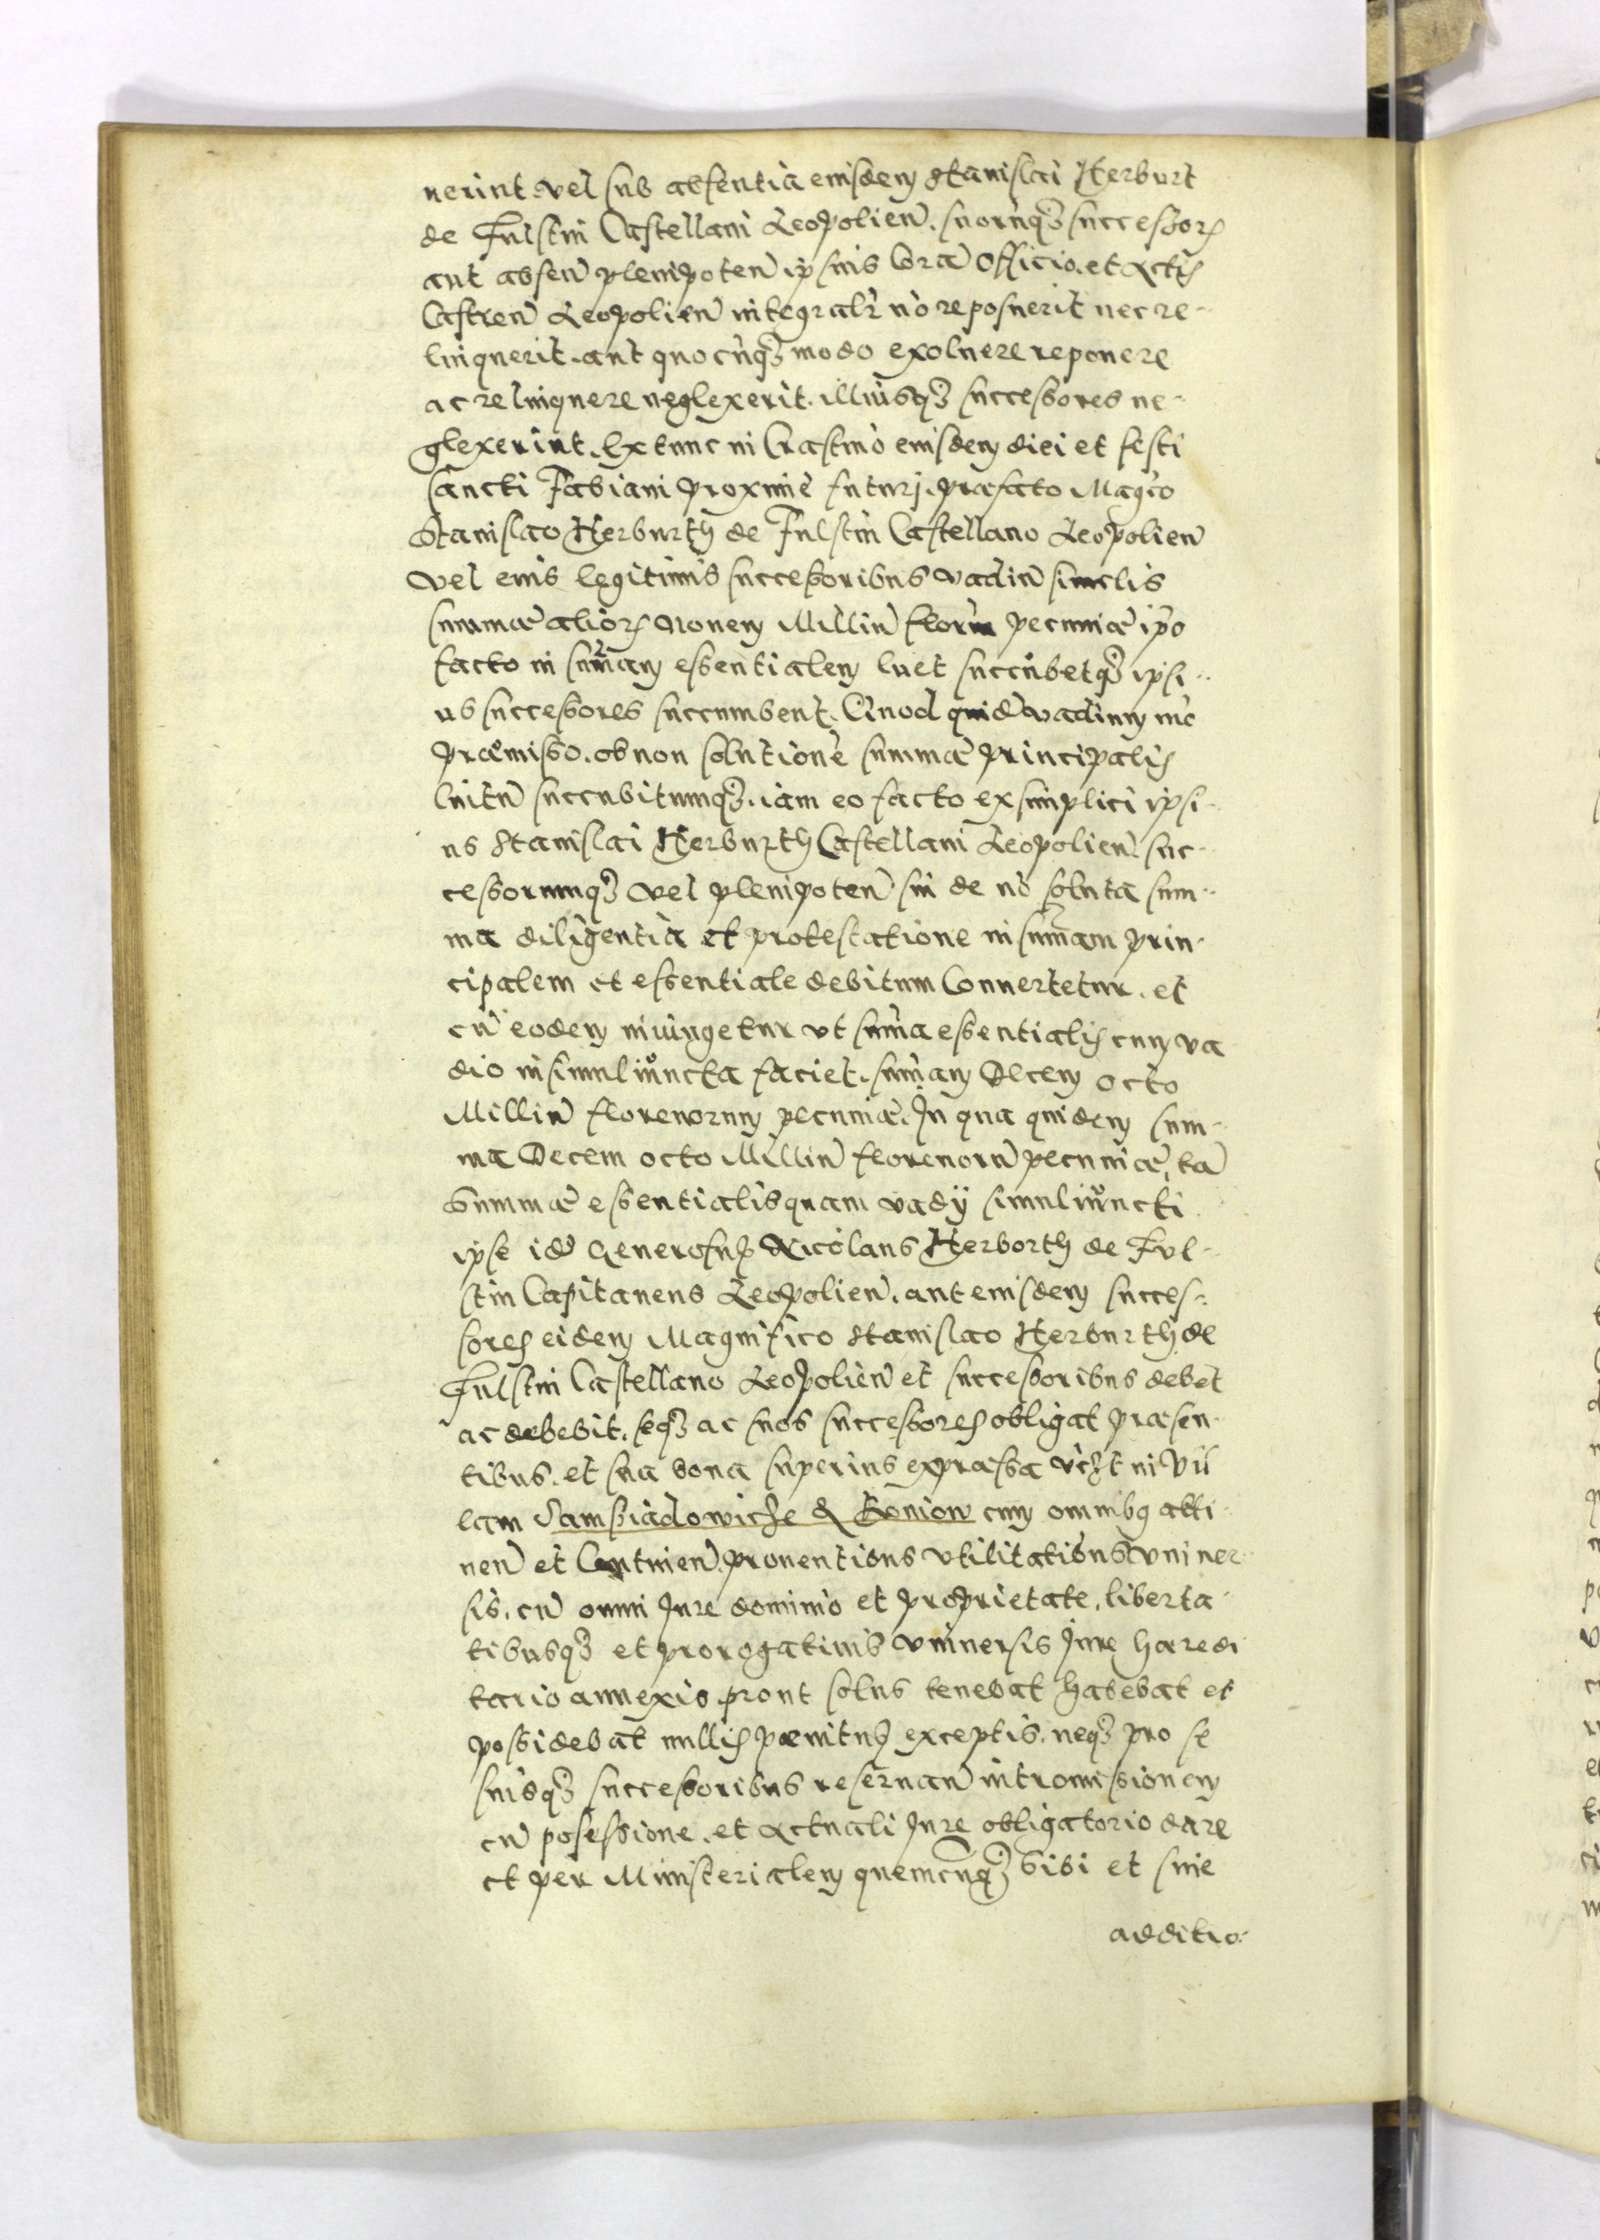 uerint. vel sub absentia eiusdem Stanislai Herburt
de Fulstin Castellani Leopolien̄. suorūq₃ successoꝝ
aut absen̄ plenipoten̄ ipsius Corā Officio. et Actis
Castren̄ Leopolien̄ integralr̄ nō reposuerit nec re-
linquerit. aut quocūq₃ modo exoluere reponere
ac relinquere neglexerit. illiusq₃ successores ne-
glexerint. Extunc in Crastino eiusdem diei et festi
sancti Fabiani proxime futurj. præfato Magc̄o
Stanislao Herburth de Fulstin Castellano Leopolien̄
Vel eius legitimis successoribus vadiū similis
summæ alioꝝ Nouem Milliū florēn pecuniæ ip̄o
facto in sum̄am essentialem luet succūbetq₃ ipsi-
us successores succumbent. Quod quidē vadium mō
præmisso. ob non solutionē summæ principalis
luitū succubitumq₃. iam eo facto ex simplici ipsi-
us Stanislai Herburth Castellani Leopolien̄. suc-
cessorumq₃ vel plenipoten̄ sui de nō soluta sum-
ma diligentia et protestatione in sum̄am prin-
cipalem et essentiale debitum Conuertetur. et
cū eodem iniungetur vt sum̄a essentialis cum va
dio insimul iuncta faciet. sum̄am Decem octo
Milliū florenorum pecuniæ. In qua quidem sum-
ma Decem octo Milliū florenorū pecuniæ, tā
Summæ essentialis quam vadÿ simul iuncti
ipse idē Generosus Nicolaus Herborth de Ful-
stin Capitaneus Leopolien̄. aut eiusdem succes-
sores eidem Magnifico Stanislao Herburth de
Fulstin Castellano Leopolien̄ et successoribus debet
ac debebit. seq₃ ac suos successores obligat præsen-
tibus. et sua bona superius expræssa vcꝫt in Vil
lam Samsiadowicze & Koniow cum omnibꝫ atti-
nen̄ et Contuien̄. prouentions vtilitationsꝫ vniuer-
sis. cū omni Jure dominio et proprietate. liberta-
tibusq₃ et prorogatiuis vniuersis Jure haredi
tario annexis. prout solus tenebat habebat et
possidebat nullis pænitus exceptis. neq₃ pro se
suisq₃ successoribus reseruan̄ intromissionem
cū posessione. et Actuali Jure obligatorio dare
et per Ministerialem quemcunq₃ sibi et sine
additio-